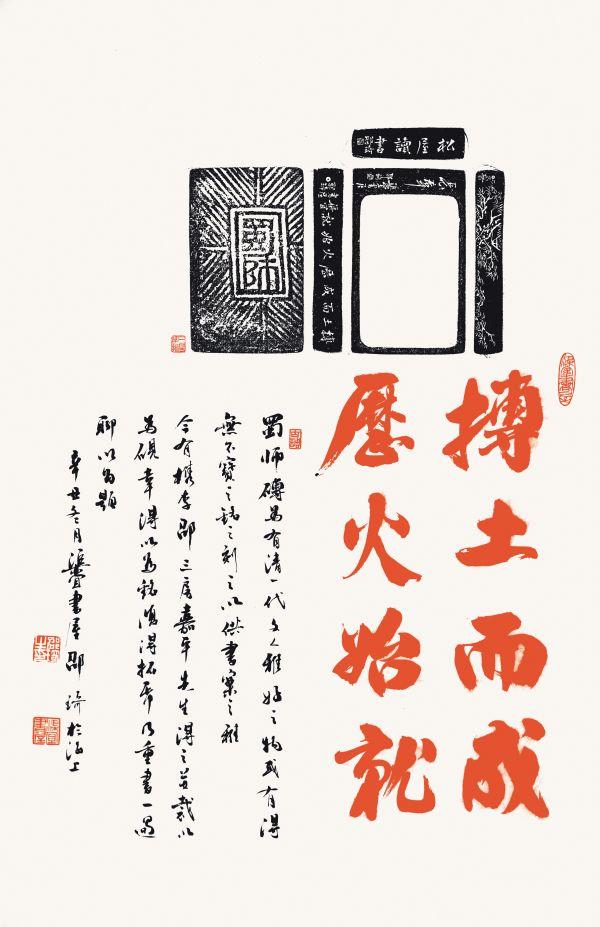 松屋讀書
蜀師
摶土而成歷火始就
摶土而成
歷火始就
蜀師磚為有清一代文人雅好之物或有得
無不寶之銘之刻之以供書案之雅
今有檇李邵三房嘉平先生得之并裁以
為硯幸得以為銘得拓乃重書一過
聊以為題
辛丑冬月書屋邵琦於海上